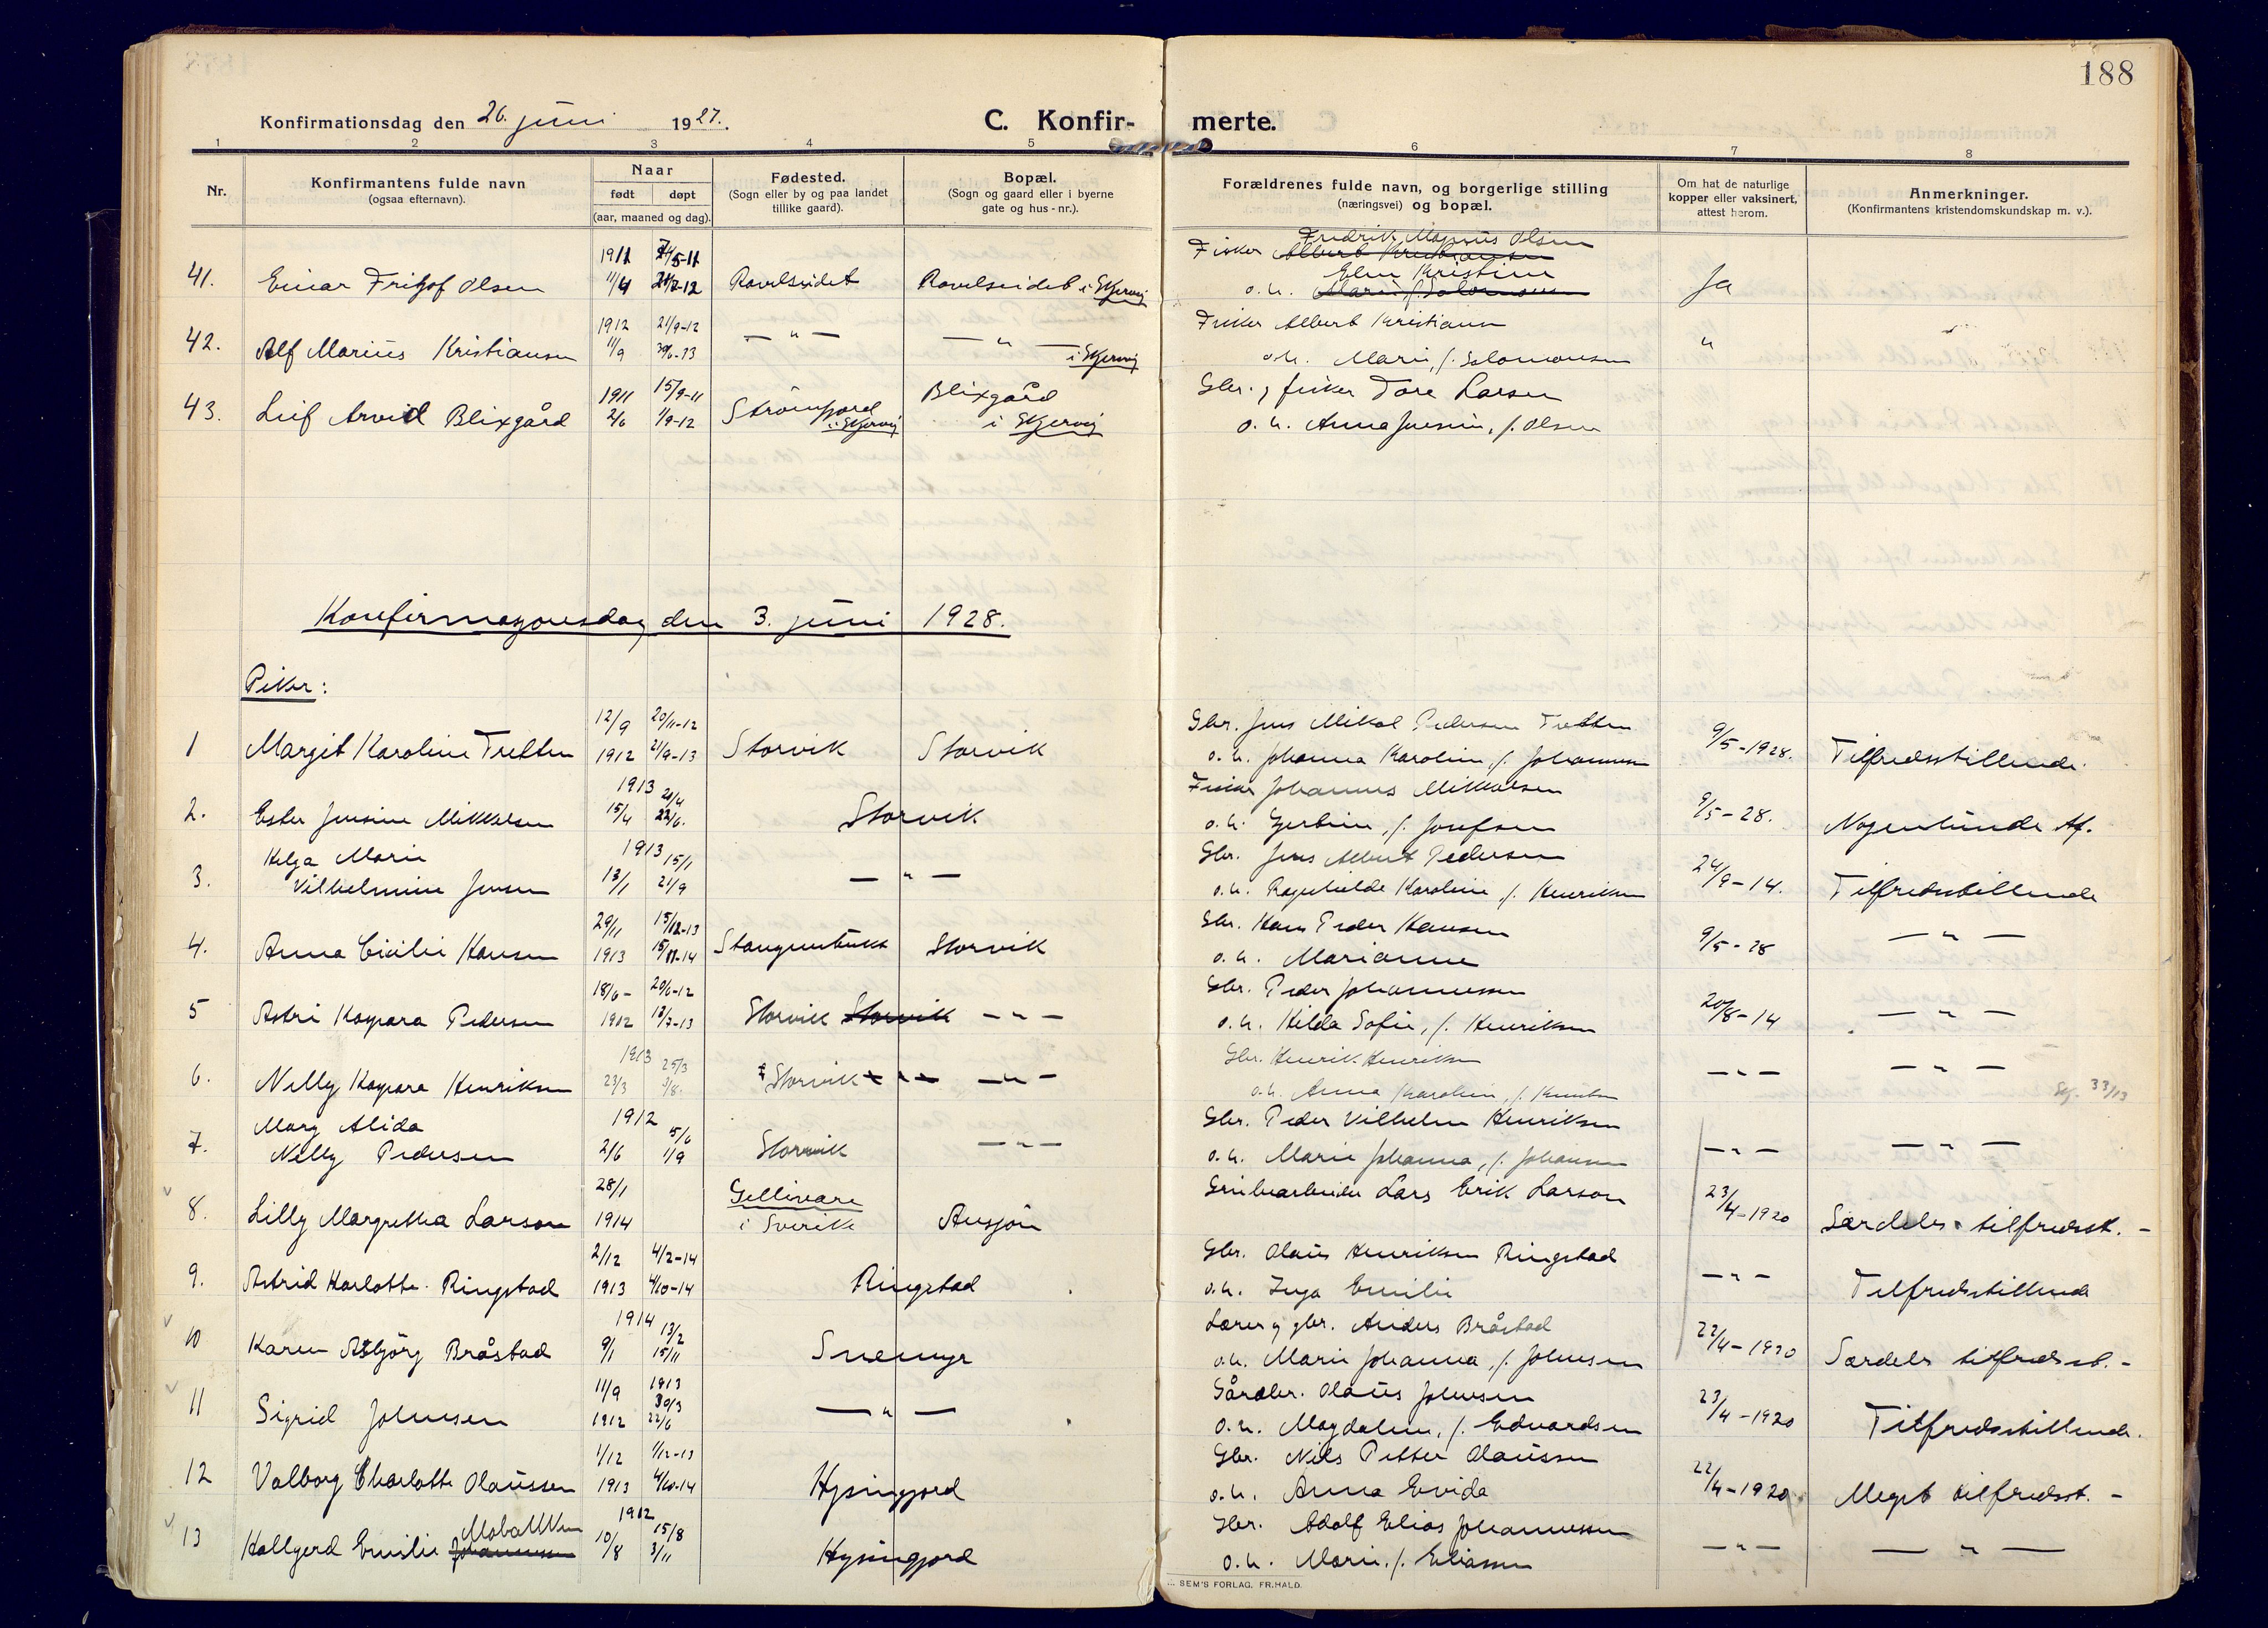 188
Konfirmationsdag den 26. juni 1927.
C. Konfir- merte.
1 2 3 4 5 6 7 8
Nr.
Konfirmantens fulde navn
(ogsaa efternavn).
Naar
født døpt
(aar, maaned og dag).
Fødested.
(Sogn eller by og paa landet
tillike gaard).
Bopæl.
(Sogn og gaard eller i byerne
gate og hus-nr.).
Forældrenes fulde navn, og borgerlige stilling
(næringsvei) og bopæl.
Om hat de naturlige
kopper eller vaksinert,
attest herom.
Anmerkninger.
(Konfirmantens kristendomskundskap m. v.).
Fredrik Magnus Olsen
1911 Fisker Albert Kristiansen
41. Einar Fritjof Olsen 11/4 Ravelseidet Ravelseidet i Skjervøy Elen Kristine Ja
o. h. Marie, f. Salomonsen
1912 21/9-12 Fisker Albert Kristiansen
42. Alf Marius Kristiansen 11/9 — " — — " — i Skjervøy o. h. Marie, f. Salomonsen "
1911 15/9-11 Blixgård Gbr. og fisker Tore Larsen
43. Leif Arvid Blixgård 2/6 1/9-12 Strømfjord i Skjervøy i Skjervøy o. h. Anna Jensine, f. Olsen
Konfirmasjonsdag den 3. juni 1928.
Piker:
12/9 20/11-12 Gbr. Jens Mikal Pedersen Tretten
1 Margit Karoline Tretten 1912 21/9-13 Storvik Storvik o. h. Johanna Karoline, f. Johannesen 9/5-1928. Tilfredsstillende.
1913 20/4 Fisker Johannes Mikkelsen
2. Ester Jensine Mikkelsen 15/4 22/6. Storvik o. h. Gjertine, f. Josefsen 9/5-28. Nogenlunde tf.
Helga Marie 1913 15/1 Gbr. Jens Albert Pedersen
3. Vilhelmine Jensen 13/1 21/9 — " — o. h. Ragnhilde Karoline, f. Henriksen 24/9-14. Tilfredsstillende
29/11 15/12-13 Gbr. Hans Peder Hansen
4. Anna Cicilie Hansen 1913 15/11-14 Stangnesbukt Storvik o. h. Marianne 9/5-28 — " —
18/6- 20/6-12 Gbr. Peder Johannessen
5 Astri Kaspara Pedersen 1912 13/7-13 Storvik Storvik — " — o. h. Hilda Sofie, f. Henriksen 20/8-14 — " —
1913 25/3 Gbr. Henrik Henriksen
6. Nelly Kaspara Henriksen 23/3 3/8. Storvik — " — o. h. Anna Karoline, f. Knutsen — " — — " — 33/13
Mary Alida 1912 5/6 Gbr. Peder Vilhelm Henriksen
7. Nelly Pedersen 2/6 1/9 Storvik — " — o. h. Marie Johanna, f. Johansen — " — — " —
28/1 Gellivare Grubearbeider Lars Erik Larson
8. Lilly Margretha Larson 1914 i Sverike Ansjøn 23/4-1920 Særdeles tilfredsst. -
2/12 4/2-14 Gbr. Olaus Henriksen Ringstad
9. Astrid Karlotte Ringstad 1913 4/10-14 Ringstad o. h. Inga Emilie — " — Tilfredsstillende
1914 13/2 Lærer og gbr. Anders Bråstad
10 Karen Asbjørg Bråstad 9/1 15/11 Snemyr o. h. Marie Johanna, f. Johnsen 22/4-1920 Særdeles tilfredsst. -
11/9 1913 30/3 Gårdbr. Olaus Johnsen
11 Sigrid Johnsen 1912 22/6 — " — o. h. Magdalene, f. Edvardsen 23/4-1920 Tilfredsstillende.
1/12 1/12-13 Gbr. Nils Petter Olaussen
12 Valborg Charlotte Olaussen 1913 4/10-14 Hysingjord o. h. Anna Evida 22/4-1920 Meget tilfredsst. -
Mobakken 1912 15/8 Gbr. Adolf Elias Johannessen
13 Hallgerd Emilie Johannessen 10/8 3/11 Hysingjord o. h. Marie, f. Eliassen — " — — " —
SEM'S FORLAG. FR.HALD.